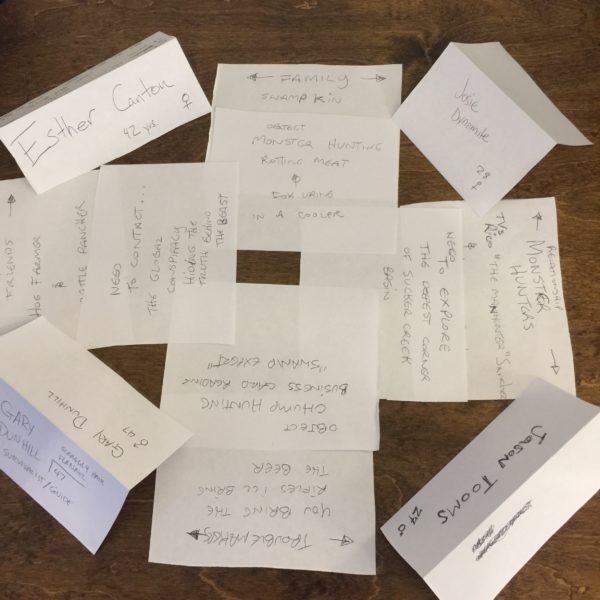 Esther Canton
42 yrs ♀
← FAMILY →
SWAMP KIN
OBJECT
MONSTER HUNTING
ROTTING MEAT
FOR USING
IN A COOLER
Josie
Dynomite
28
♀
RELATIONSHIP
MONSTER
HUNTERS
TVs
RICO "THE MANHUNTER"
NEED TO EXPLORE
THE DEEPEST CORNER
OF SUCKER CREEK
BASIN
JASON TOOMS
29 ♂
← TROUBLEMAKERS →
YOU BRING THE
RIFLES I'LL BRING
THE BEER
OBJECT
CHUMP HUNTING
BUSINESS CARD READING
"SWAMP EXPERT"
GARY DUNHILL
♂ 47
GARY
DUNHILL
47
SURVIVALIST/GUIDE
FRIENDS
HOG FARMER
&
CATTLE RANCHER
NEED
TO CONTACT...
THE GLOBAL
CONSPIRACY
HIDING THE
TRUTH BEHIND
THE BEAST